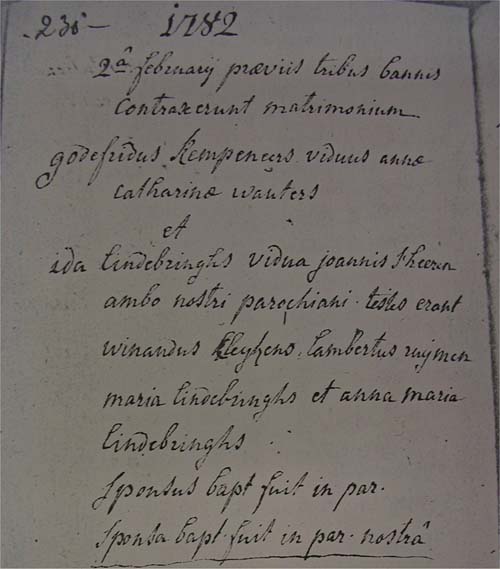 230 - 1782
2â februarij præviis tribus bannis
contraxerunt matrimonium
godefridus kempeneers viduus annæ
catharinæ wauters
et
ida lindebringhs vidua joannis theeren
ambo nostri parochiani. testes erant
winandus kleykens, lambertus ruymen
maria lindebringhs et anna maria
lindebringhs
sponsus bapt fuit in par.
sponsa bapt. fuit in par. nostrâ